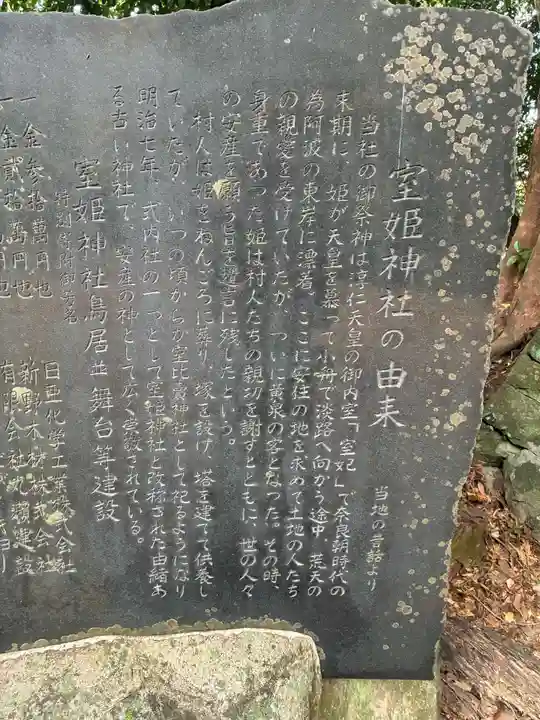 室姫神社の由来
当地の昔話より
当社の御祭神は淳仁天皇の御内室「室妃」で奈良朝時代の
末期に、姫が天皇を慕って小舟で淡路へ向かう途中、荒天の
為阿波の東岸に漂着、ここに安住の地を求めて土地の人たち
の親愛を受けていたが、ついに黄泉の客となった。その時、
身重であった姫は村人たちの親切を謝すとともに、世の人々
の安産を願う旨を誓言に残したという。
村人は姫をねんごろに葬り、塚を設け、塔を建てて供養し
ていたが、いつの頃からか室比賣神社として祀るようになり
明治七年、式内社の一つとして室姫神社と改称された由緒あ
る古い神社で、安産の神として広く崇敬されている。
室姫神社鳥居並舞台等建設
特別寄附御芳名
一金参拾萬円也 日亜化学工業株式会社
一金貳拾萬円也 新野木材株式会社
有限会社丸